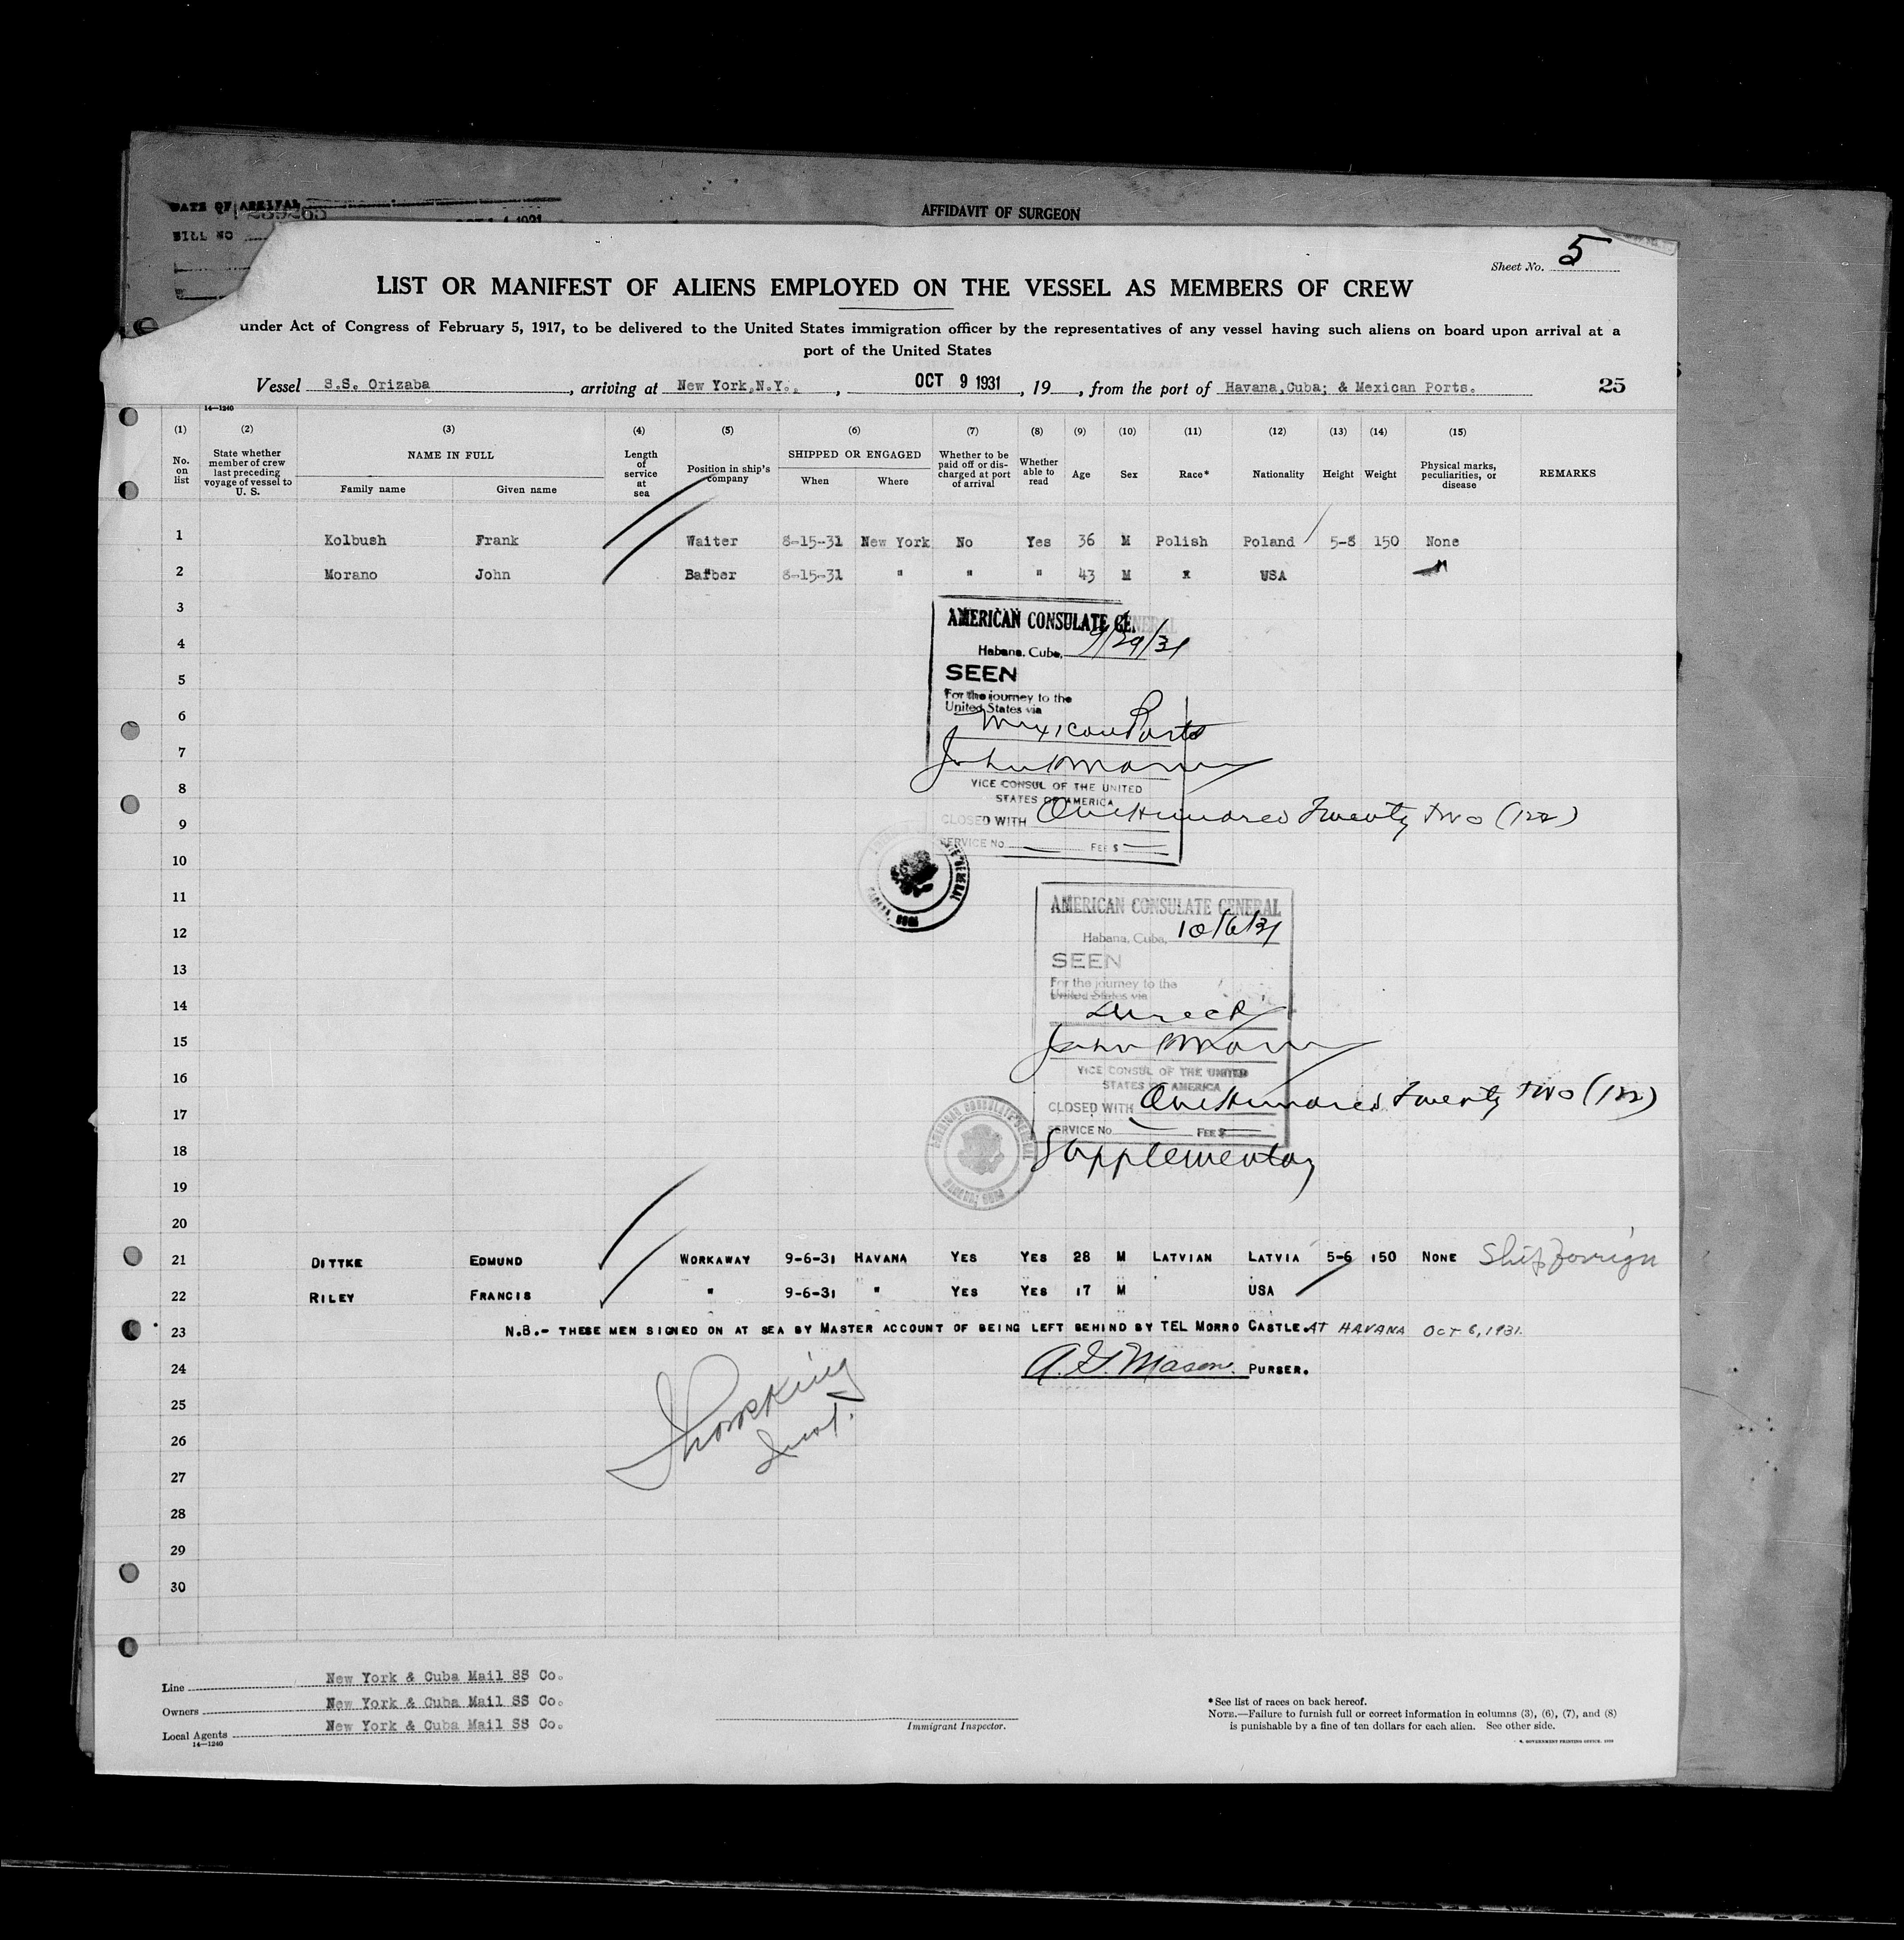 DATE OF ARRIVAL
BILL NO
AFFIDAVIT OF SURGEON
Sheet No. 5
LIST OR MANIFEST OF ALIENS EMPLOYED ON THE VESSEL AS MEMBERS OF CREW
under Act of Congress of February 5, 1917, to be delivered to the United States immigration officer by the representatives of any vessel having such aliens on board upon arrival at a
port of the United States
Vessel S.S. Orizaba, arriving at New York, N.Y., OCT 9 1931, 19__, from the port of Havana, Cuba; & Mexican Ports. 25
14—1240
(1) (2) (3) (4) (5) (6) (7) (8) (9) (10) (11) (12) (13) (14) (15)
No. on list
State whether member of crew last preceding voyage of vessel to U. S.
NAME IN FULL
Family name Given name
Length of service at sea
Position in ship's company
SHIPPED OR ENGAGED
When Where
Whether to be paid off or discharged at port of arrival
Whether able to read
Age
Sex
Race*
Nationality
Height
Weight
Physical marks, peculiarities, or disease
REMARKS
1 Kolbush Frank Waiter 8-15-31 New York No Yes 36 M Polish Poland 5-8 150 None
2 Morano John Barber 8-15-31 " " " 43 M USA "
3
AMERICAN CONSULATE GENERAL
4
Habana, Cuba, 9/29/31
5
SEEN
For the journey to the
United States via
6
Mexican Ports
7
8
VICE CONSUL OF THE UNITED
STATES OF AMERICA
9
CLOSED WITH One Hundred Twenty two (122)
SERVICE No. FEE $
10
11
AMERICAN CONSULATE GENERAL
12
Habana, Cuba, 10/6/31
13
SEEN
For the journey to the
United States via
14
Direct
15
16
VICE CONSUL OF THE UNITED
STATES OF AMERICA
17
CLOSED WITH One Hundred Twenty two (122)
SERVICE No. FEE $
AMERICAN CONSULATE GENERAL
HABANA, CUBA
18
Supplementary
19
20
21 DITTKE EDMUND WORKAWAY 9-6-31 HAVANA YES YES 28 M LATVIAN LATVIA 5-6 150 NONE Ship foreign
22 RILEY FRANCIS " 9-6-31 " YES YES 17 M USA
23 N.B.- THESE MEN SIGNED ON AT SEA BY MASTER ACCOUNT OF BEING LEFT BEHIND BY TEL MORRO CASTLE. AT HAVANA OCT 6, 1931.
24 A. G. Mason. PURSER.
25
26
27
28
29
30
Line New York & Cuba Mail SS Co.
Owners New York & Cuba Mail SS Co.
Local Agents New York & Cuba Mail SS Co.
14—1240
Immigrant Inspector.
*See list of races on back hereof.
NOTE.—Failure to furnish full or correct information in columns (3), (6), (7), and (8)
is punishable by a fine of ten dollars for each alien. See other side.
GOVERNMENT PRINTING OFFICE